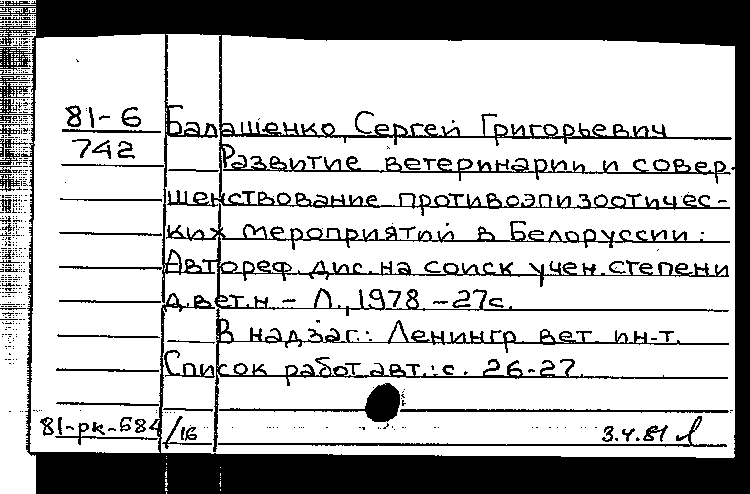 81-6
742
Балашенко, Сергей Григорьевич
Развитие ветеринарии и совер-
шенствование противоэпизоотичес-
ких мероприятий в Белоруссии:
Автореф. дис. на соиск. учен. степени
д.вет.н. - Л., 1978. - 27с.
В надзаг.: Ленингр. вет. ин-т.
Список работ авт.: с. 26-27.
81-рк-584/16
3.4.81